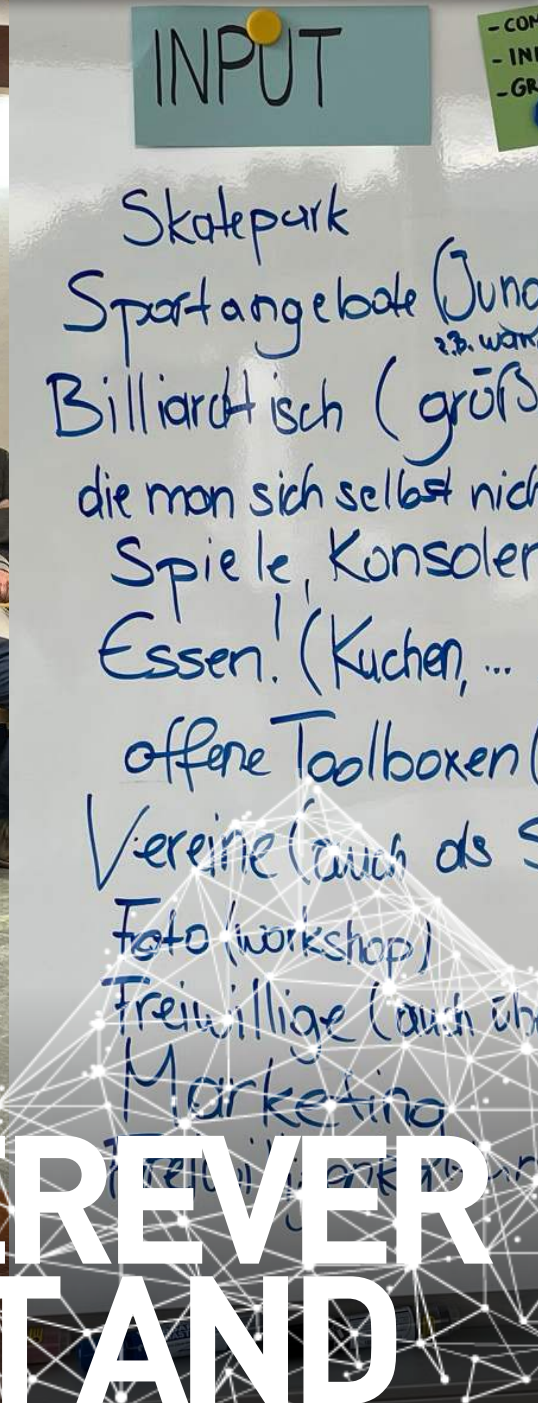 INPUT
- COM
- IN
- GR
Skatepark
Sportangebote (Jung
z.B. work
Billiardtisch ( größ
die man sich selbst nich
Spiele, Konsolen
Essen! (Kuchen, ...
offene Toolboxen (
Vereine (auch als S
Foto (workshop)
Freiwillige (auch üb
Marketing
EREVER
T AND